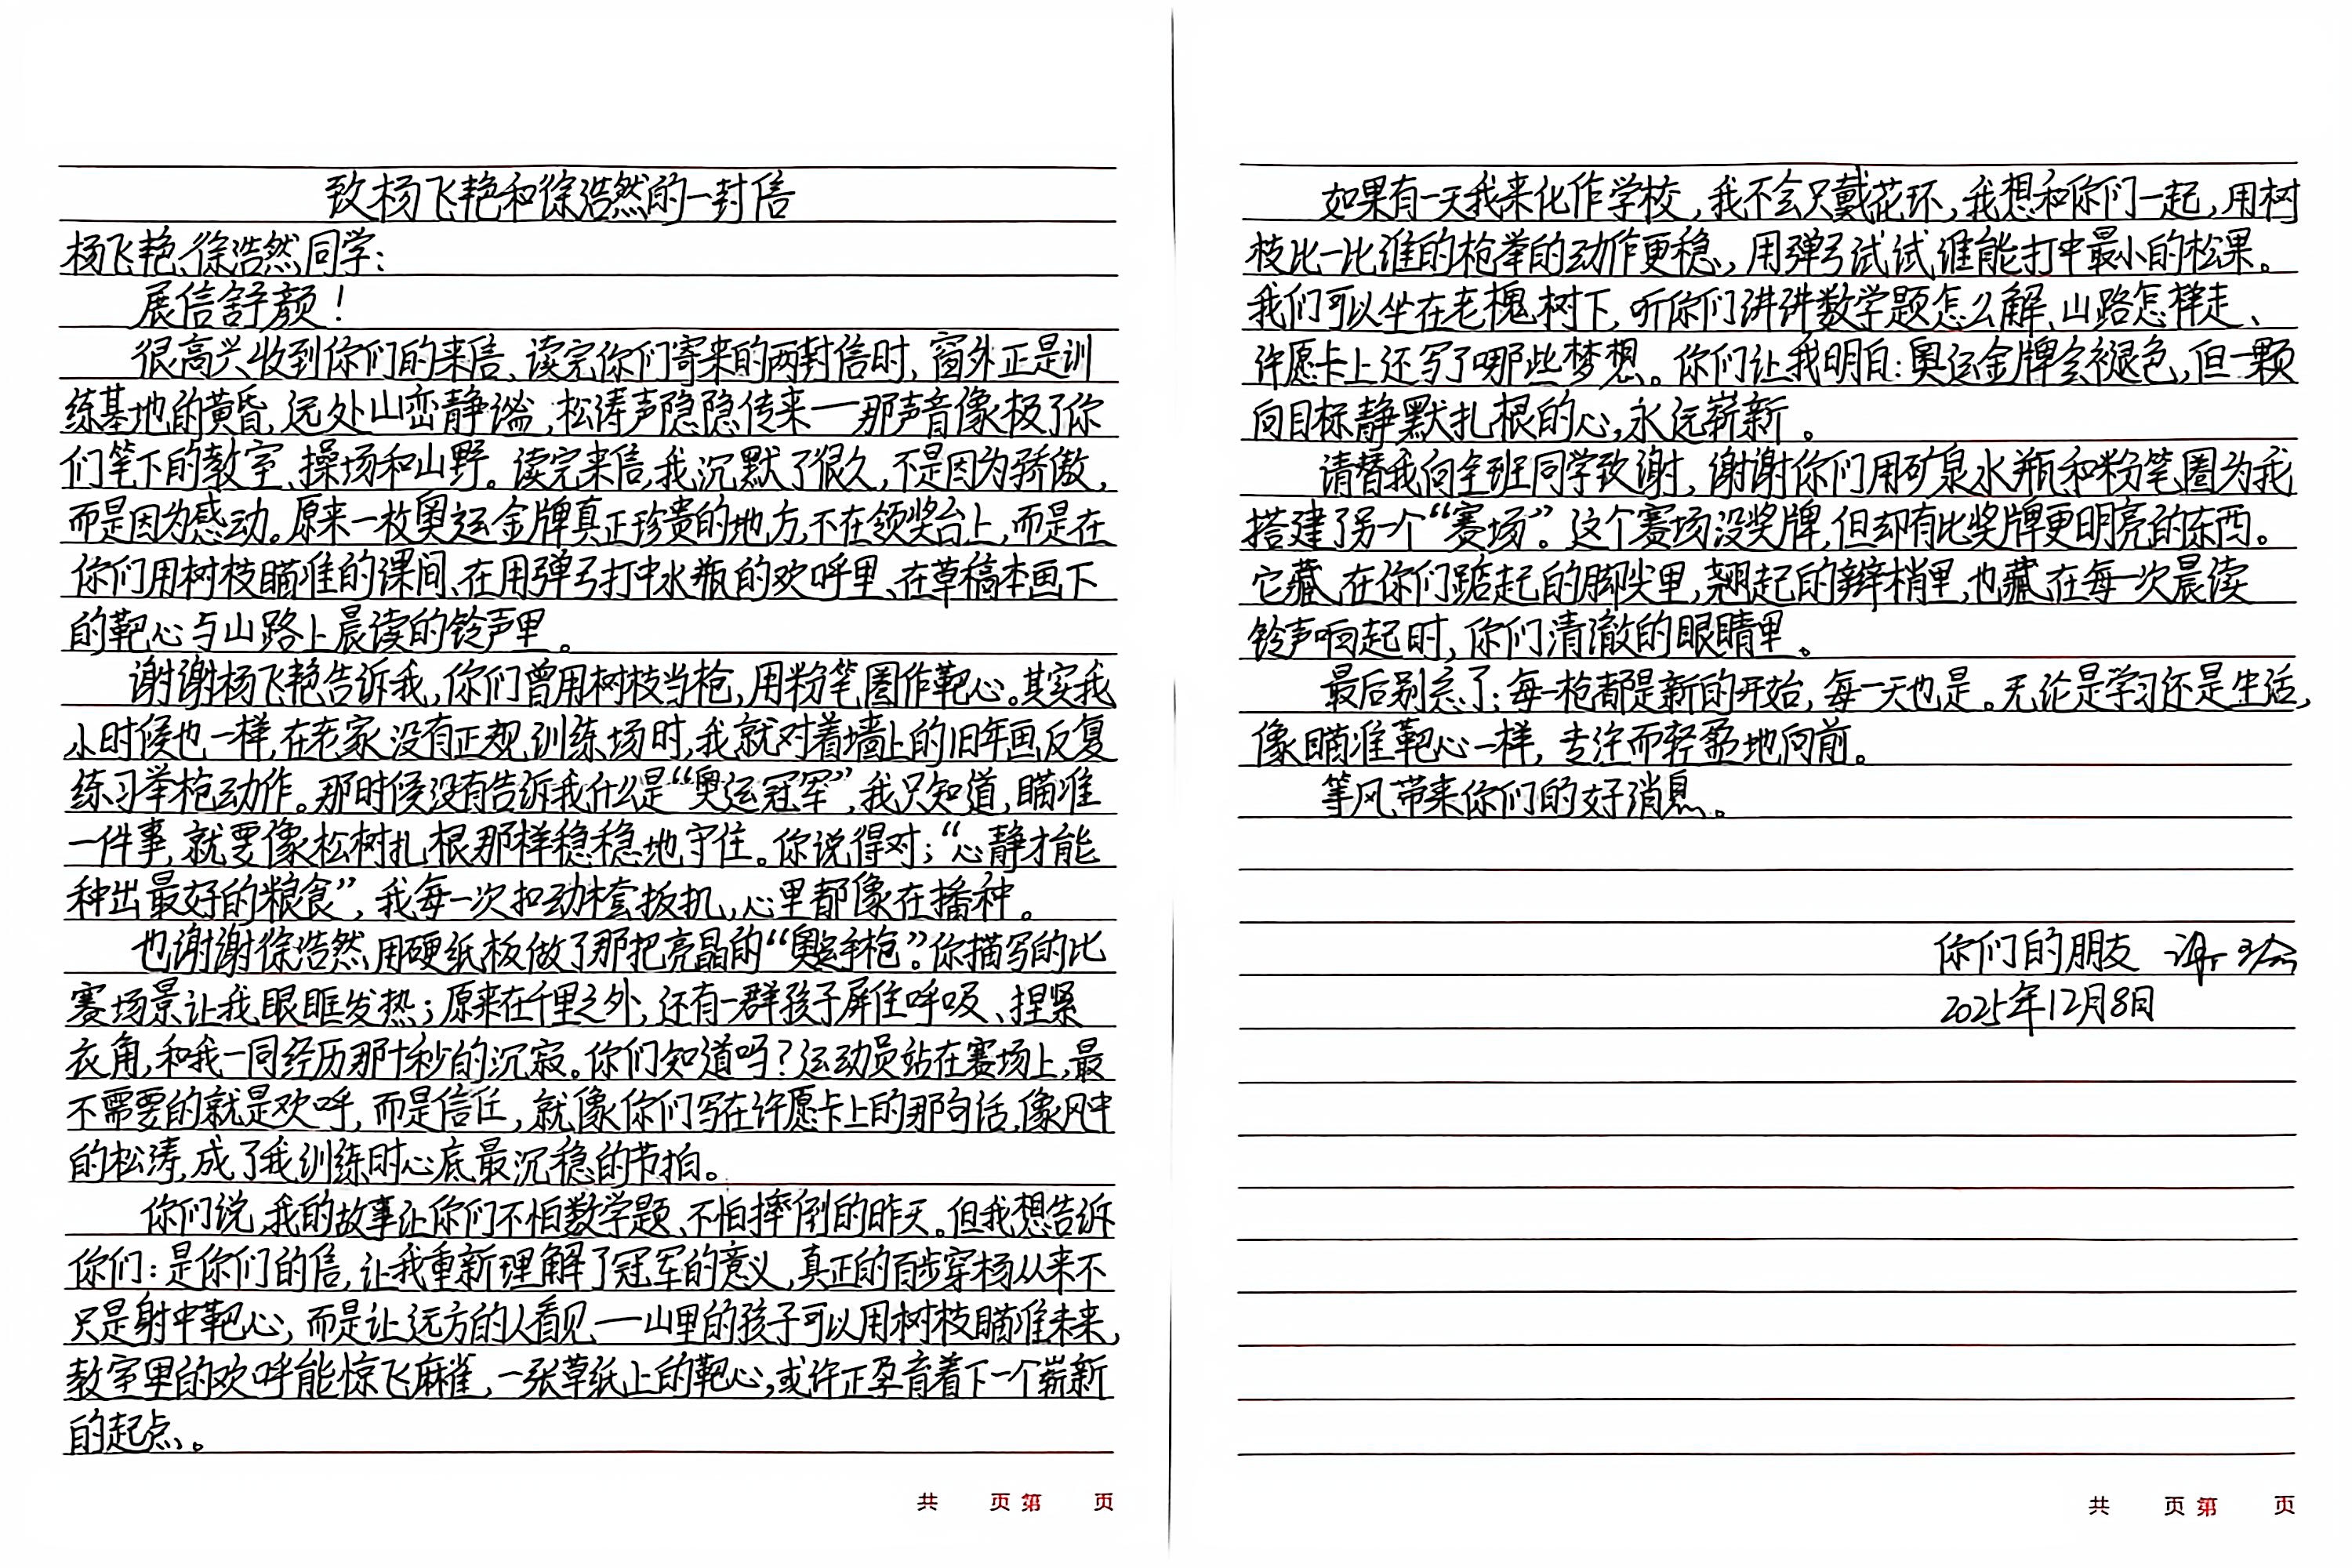 致杨飞艳和徐浩然的一封信
杨飞艳、徐浩然同学:
展信舒颜!
很高兴收到你们的来信、读完你们寄来的两封信时,窗外正是训
练基地的黄昏,远处山峦静谧,松涛声隐隐传来——那声音像极了你
们笔下的教室、操场和山野。读完来信,我沉默了很久,不是因为骄傲,
而是因为感动。原来一枚奥运金牌真正珍贵的地方,不在领奖台上,而是在
你们用树枝瞄准的课间、在用弹弓打中水瓶的欢呼里、在草稿本画下
的靶心与山路上晨读的铃声里。
谢谢杨飞艳告诉我,你们曾用树枝当枪,用粉笔圈作靶心。其实我
小时候也一样,在老家没有正规训练场时,我就对着墙上的旧年画反复
练习举枪动作。那时候没有告诉我什么是“奥运冠军”,我只知道,瞄准
一件事,就要像松树扎根那样稳稳地守住。你说得对;“心静才能
种出最好的粮食”,我每一次扣动扳机,心里都像在播种。
也谢谢徐浩然,用硬纸板做了那把亮晶的“奥运手枪”。你描写的比
赛场景让我眼眶发热;原来在千里之外,还有一群孩子屏住呼吸、捏紧
衣角,和我一同经历那十秒的沉寂。你们知道吗?运动员站在赛场上,最
不需要的就是欢呼,而是信任,就像你们写在许愿卡上的那句话,像风中
的松涛,成了我训练时心底最沉稳的节拍。
你们说,我的故事让你们不怕数学题、不怕摔倒的昨天。但我想告诉
你们:是你们的信,让我重新理解了冠军的意义,真正的百步穿杨从来不
只是射中靶心,而是让远方的人看见——山里的孩子可以用树枝瞄准未来,
教室里的欢呼能惊飞麻雀,一张草纸上的靶心,或许正孕育着下一个崭新
的起点。
如果有一天我来化作学校,我不会只戴花环,我想和你们一起,用树
枝比一比谁的枪举的动作更稳,用弹弓试试谁能打中最小的松果。
我们可以坐在老槐树下,听你们讲讲数学题怎么解、山路怎样走、
许愿卡上还写了哪些梦想。你们让我明白:奥运金牌会褪色,但一颗
向目标静默扎根的心,永远崭新。
请替我向全班同学致谢,谢谢你们用矿泉水瓶和粉笔圈为我
搭建了另一个“赛场”。这个赛场没奖牌,但却有比奖牌更明亮的东西。
它藏在你们踮起的脚尖里,翘起的辫梢里,也藏在每一次晨读
铃声响起时,你们清澈的眼睛里。
最后别忘了:每一枪都是新的开始,每一天也是。无论是学习还是生活,
像瞄准靶心一样,专注而轻盈地向前。
等风带来你们的好消息。
你们的朋友 谢瑜
2025年12月8日
共 页 第 页
共 页 第 页